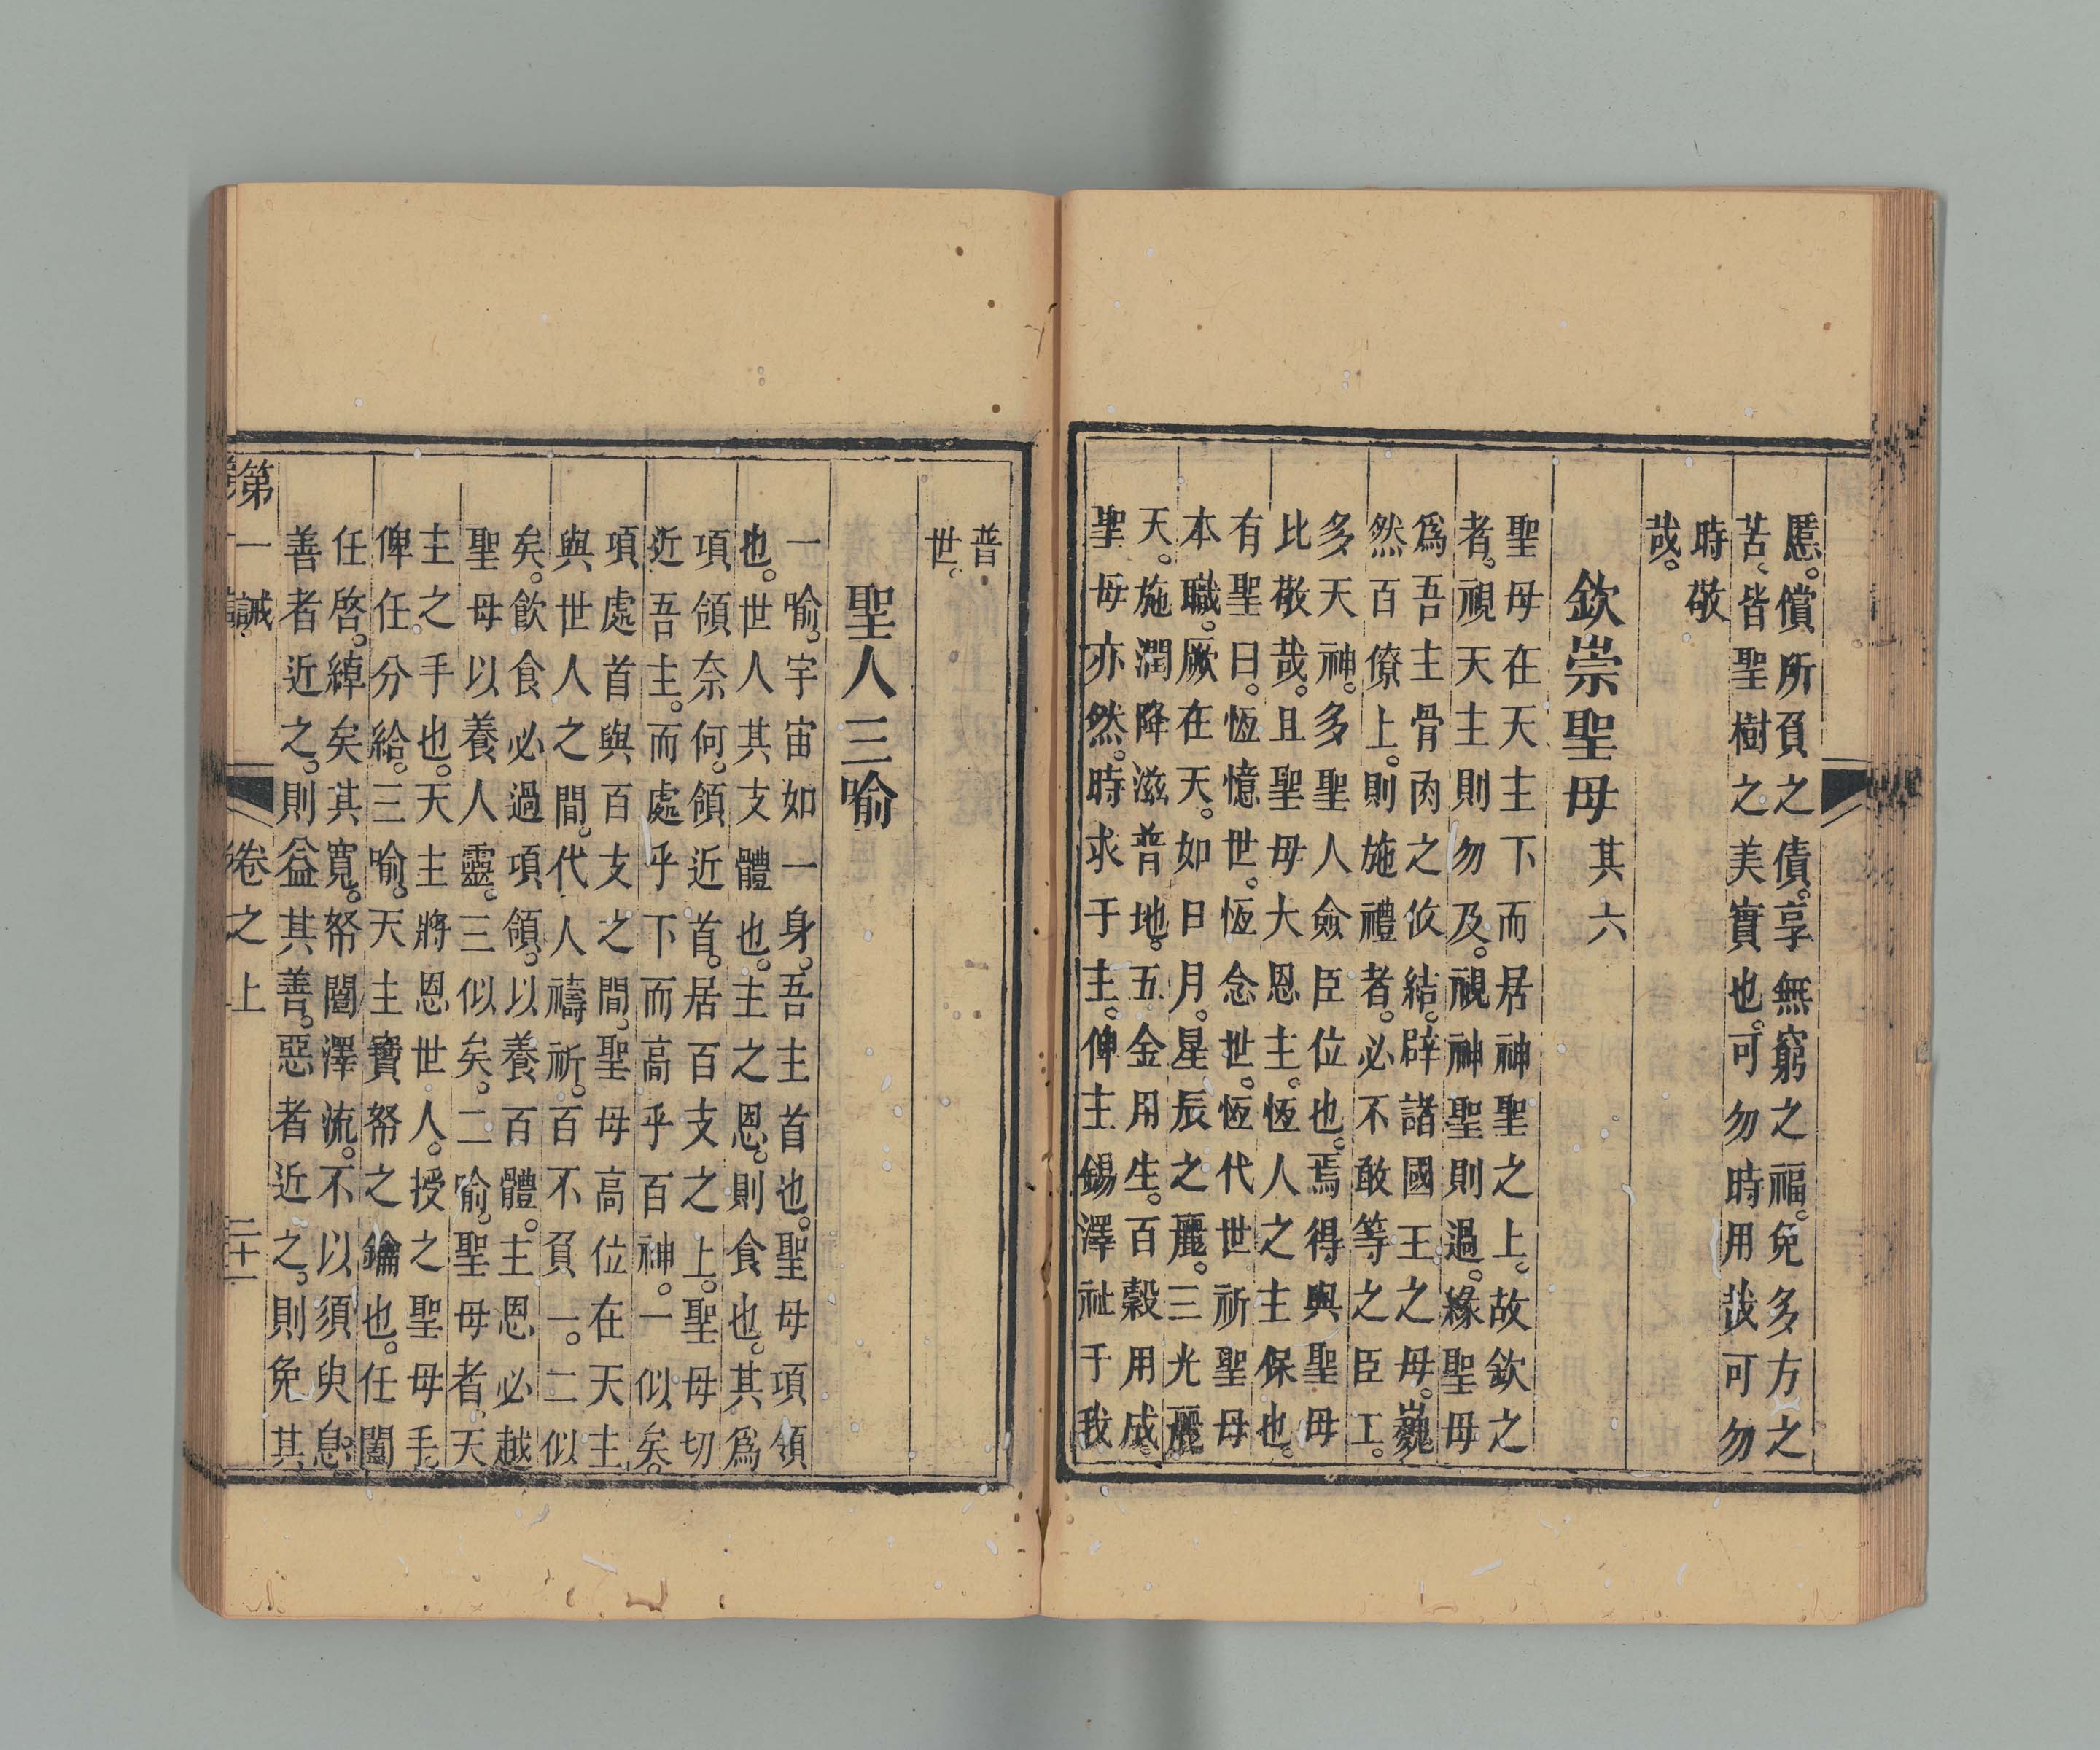 慝。償所負之債。享無窮之福。免多方之
苦、皆聖樹之美實也。可勿時用哉可勿
時敬
哉。
欽崇聖母其六
聖母在天主下而居神聖之上。故欽之
者。視天主則勿及。視神聖則過。緣聖母
爲吾主骨肉之攸結。辟諸國王之母。巍
然百僚上。則施禮者。必不敢等之臣工。
多天神。多聖人僉臣位也。焉得與聖母
比敬哉。且聖母大恩主。恆人之主保也。
有聖曰。恆憶世。恆念世。恆代世祈聖母
本職。厥在天。如日月。星辰之麗。三光麗
天。施潤降滋普地。五金用生。百穀用成。
聖母亦然。時求于主。俾主錫澤祉于我
普
世。
聖人三喻
一喻。宇宙如一身。吾主首也。聖母項領
也。世人其支體也。主之恩。則食也。其爲
項領奈何。領近首。居百支之上。聖母切
近吾主。而處乎下而高乎百神。一似矣。
項處首與百支之間。聖母高位在天主
與世人之間。代人禱祈。百不負一。二似
矣。飲食必過項領。以養百體。主恩必越
聖母以養人靈。三似矣。二喻。聖母者、天
主之手也。天主將恩世人。授之聖母手。
俾任分給。三喻。天主寶帑之鑰也。任闔
任啓。綽矣其寬。帑闓澤流。不以須臾息。
善者近之。則益其善。惡者近之、則免其
第一誡 卷之上 二十一